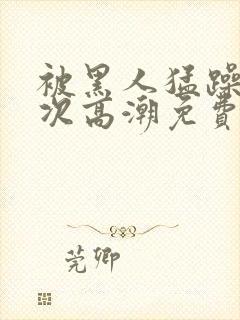 被黑人猛躁
次高潮免费
莞卿